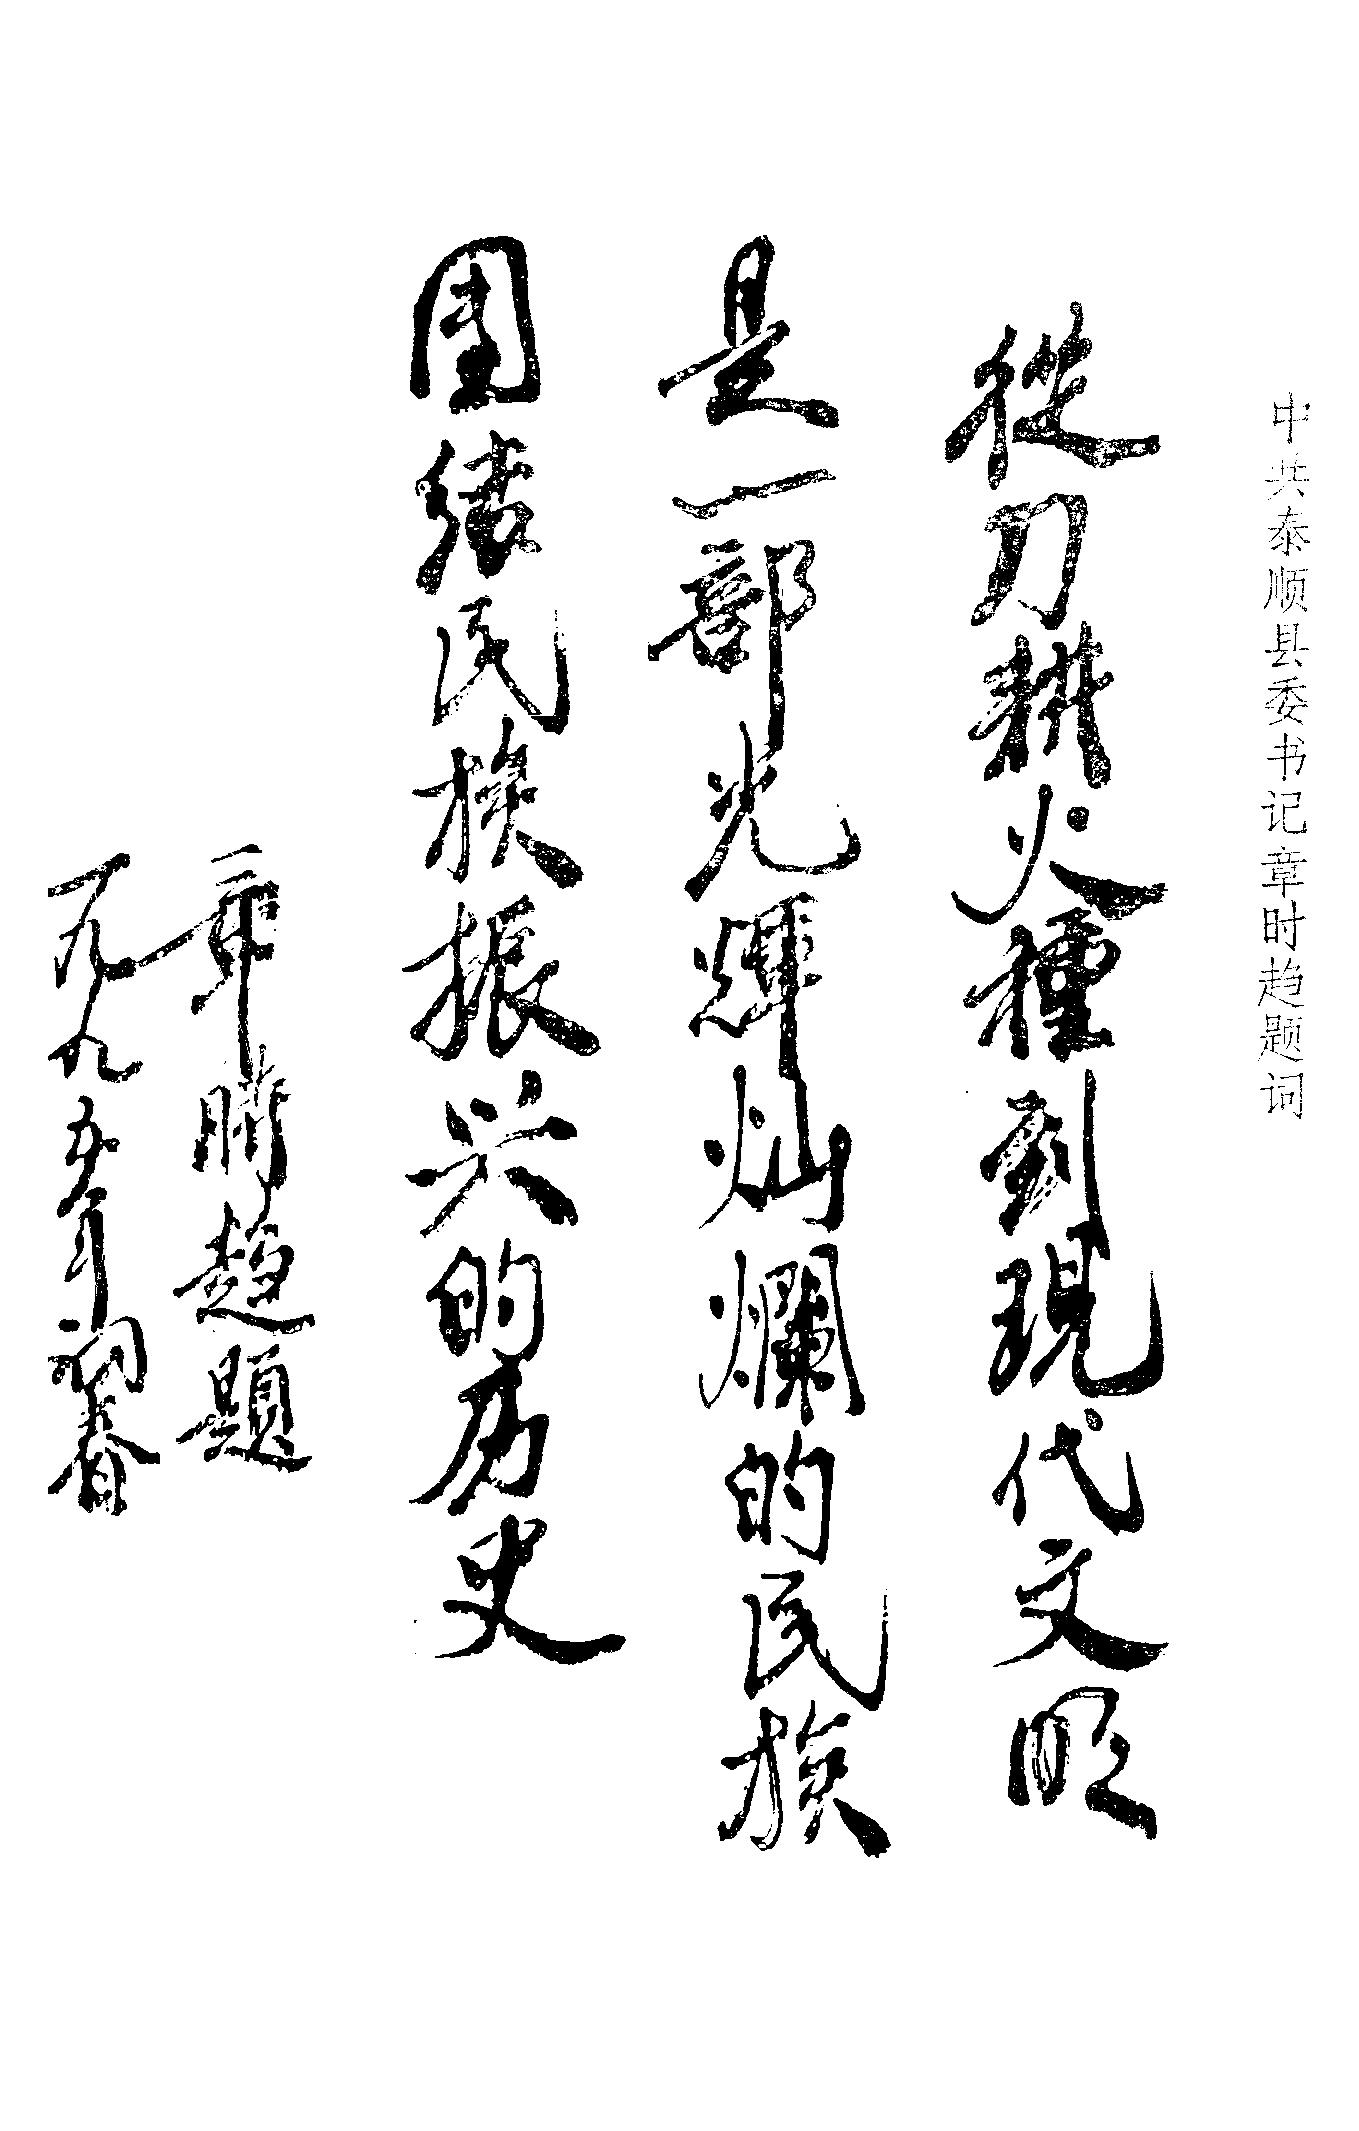 中共泰顺县委书记章时趋题词
從刀耕火種到現代文明
是一部光輝灿爛的民族
團結民族振兴的历史
章時趋題
一九九五年初春